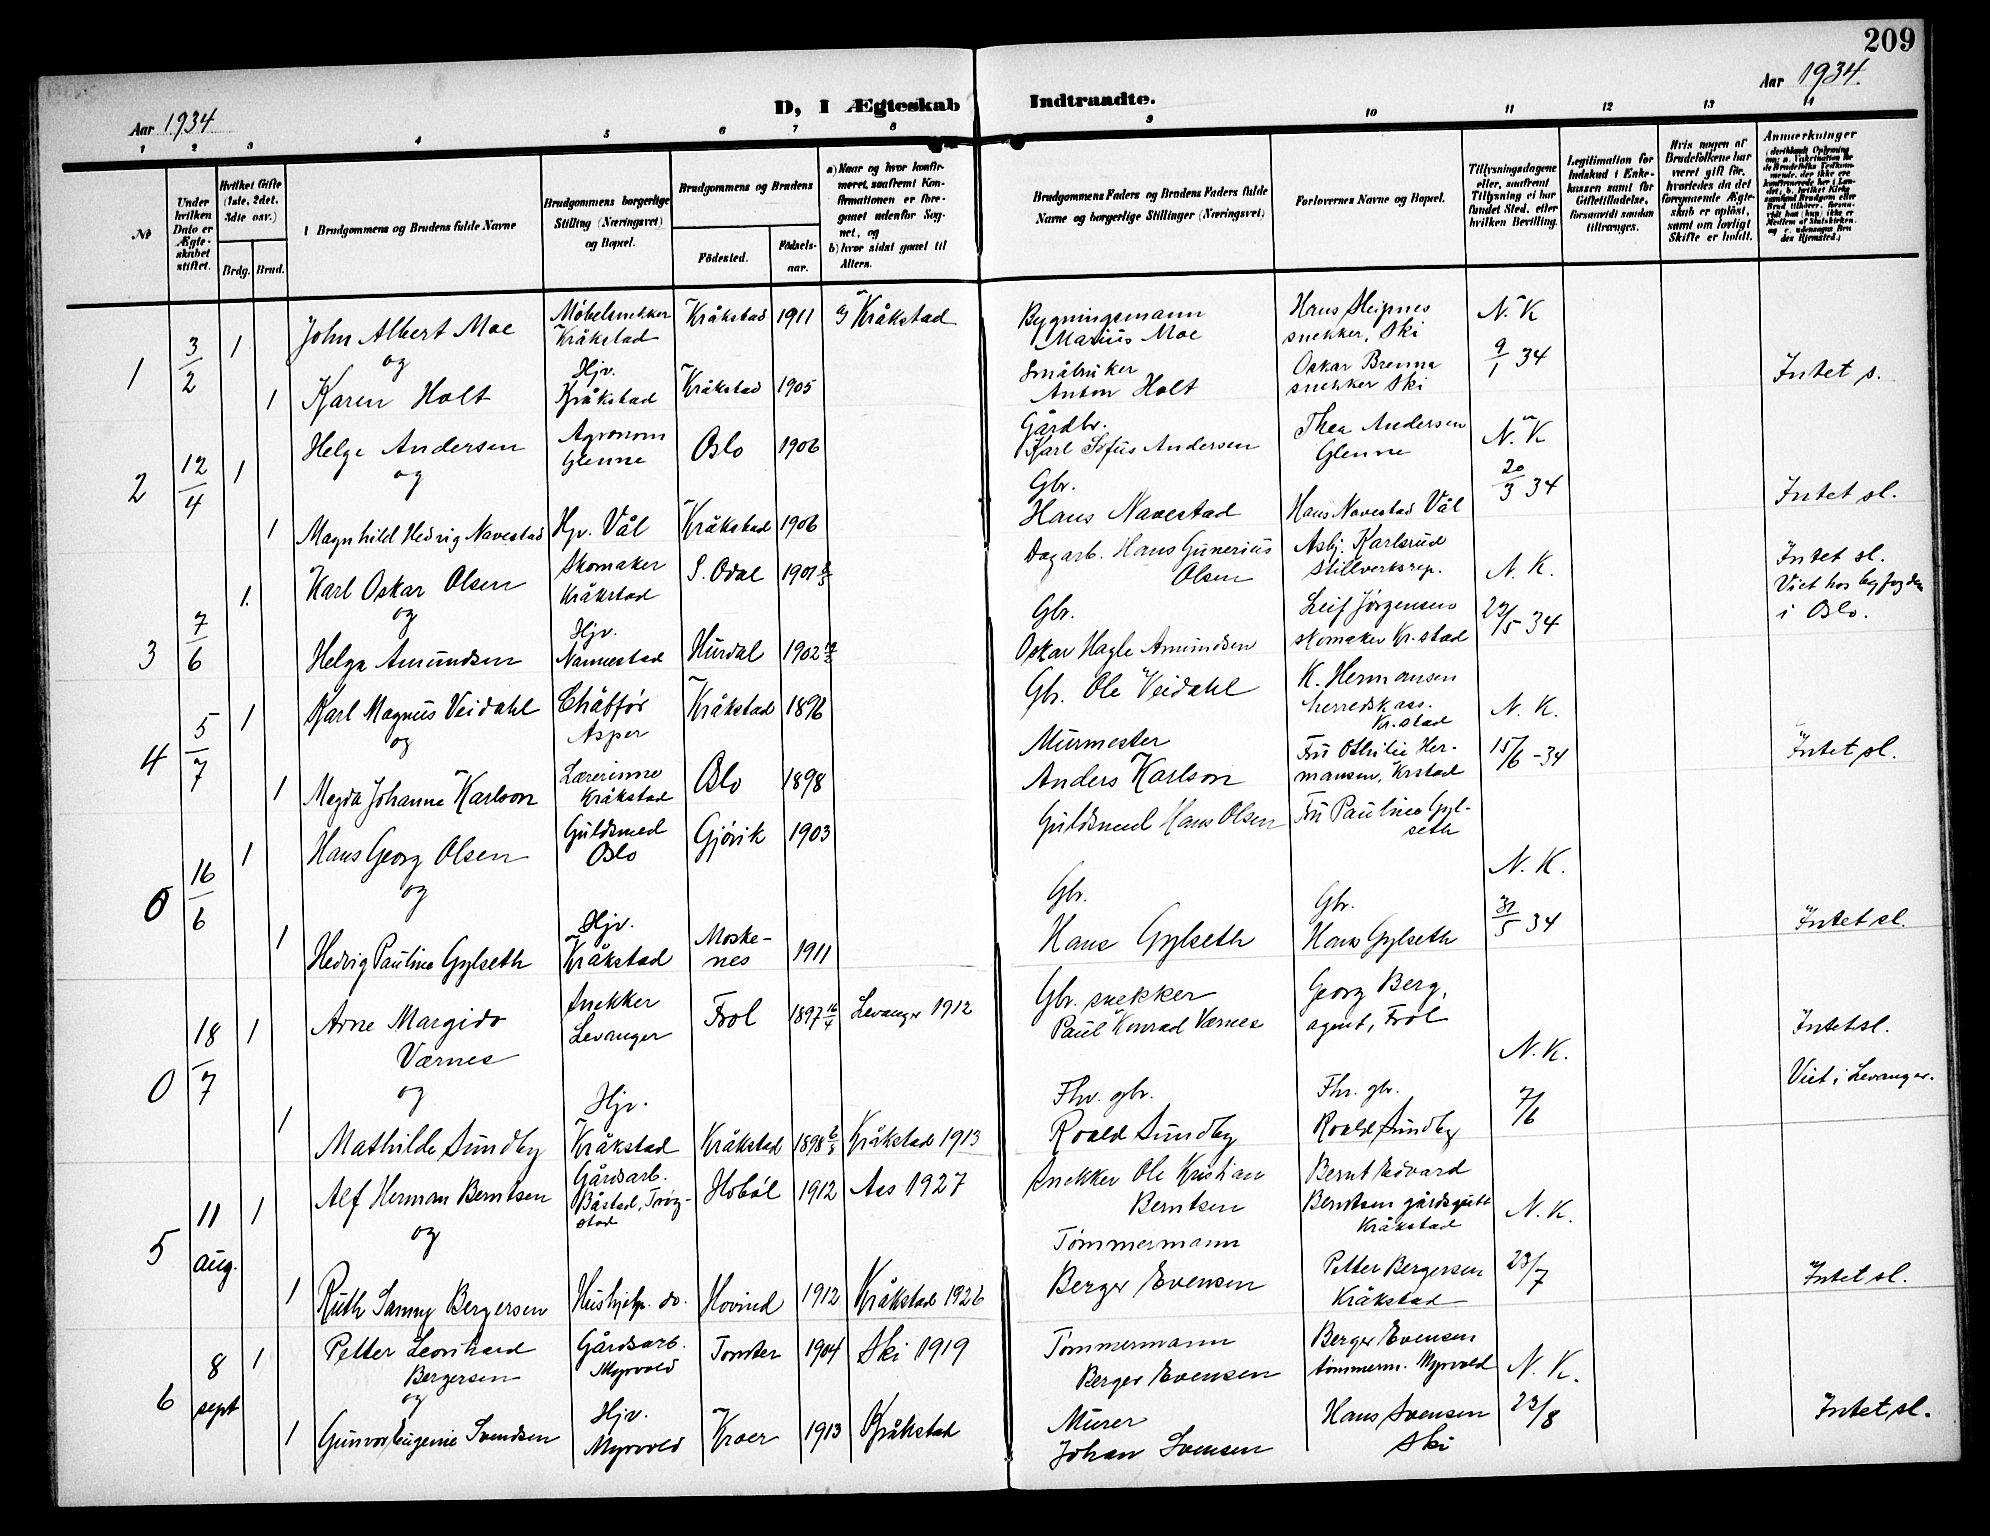 209
Aar 1934
D, I Ægteskab Indtraadte.
Aar 1934.
1 2 3 4 5 6 7 8 9 10 11 12 13 14
№
Under hvilken Dato er Ægteskabet stiftet.
Hvilket Gifte (1ste, 2det, 3die osv.)
Brdg. Brud.
Brudgommens og Brudens fulde Navne
Brudgommens borgerlige Stilling (Næringsvei) og Bopæl.
Brudgommens og Brudens
Födested.
Födselsaar.
a) Naar og hvor konfirmeret, saafremt Konfirmationen er foregaaet udenfor Sognet, og
b) hvor sidst gaaet til Alters.
Brudgommens Faders og Brudens Faders fulde Navne og borgerlige Stillinger (Næringsvei)
Forlovernes Navne og Bopæl.
Tillysningsdagene eller, saafremt Tillysning ei har fundet Sted, efter hvilken Bevilling.
Legitimation for Indskud i Enkekassen samt for Giftetilladelse, forsaavidt saadan tiltrænges.
Hvis nogen af Brudefolkene har været gift før, hvorledes da det foregaaende Ægteskab er oplöst, samt om lovligt Skifte er holdt.
Anmærkninger
1 3/2 1 John Albert Moe Møbelsnekker Kråkstad Kråkstad 1911 Kråkstad Bygningsmann Marius Moe Hans Sleipnes snekker, Ski N. K
og
1 Karen Holt Hjv. Kråkstad Kråkstad 1905 Småbruker Anton Holt Oskar Brenna snekker Ski 9/1 34 Intet s.
2 12/4 1 Helge Andersen Agronom Glenne Oslo 1906 Gårdbr. Karl Sofus Andersen Thea Andersen Glenne N. K
og
1 Magnhild Hedvig Navestad Hjv. Vål Kråkstad 1906 Gbr. Hans Navestad Hans Navestad Vål 20/3 34 Intet sl.
3 7/6 1. Karl Oskar Olsen Skomaker Kråkstad S. Odal 1901 Dagarb. Hans Gunerius Olsen Asbj. Karlsrud Stillverksrep. N. K. Intet sl. Viet hos byfogden i Oslo.
og
Helga Amundsen Hjv. Nannestad Hurdal 1902 Gbr. Oskar Hagle Amundsen Leif Jørgensen skomaker Kr.stad 22/5 34
4 5/7 1 Karl Magnus Veidahl Chåffør Asper Kråkstad 1896 Gbr. Ole Veidahl K. Hermansen herredskass. Kr.stad N. K.
og
1 Magda Johanne Karlson Lærerinne Kråkstad Oslo 1898 Murmester Anders Karlson Fru Othilie Hermansen, Krstad 15/6 -34 Intet sl.
0 16/6 1 Hans Georg Olsen Guldsmed Oslo Gjøvik 1903 Guldsmed Hans Olsen Fru Pauline Gylseth N. K.
og
1 Hedvig Pauline Gylseth Hjv. Kråkstad Moskenes 1911 Gbr. Hans Gylseth Gbr. Hans Gylseth 31/5 34 Intet sl.
0 18/7 1 Arne Margido Værnes Snekker Levanger Frol 1897 16/4 Levanger 1912 Gbr. snekker Paul Konrad Værnes Georg Berg, agent, Frol N. K. Intet sl.
og
1 Mathilde Sundby Hjv. Kråkstad Kråkstad 1898 Kråkstad 1913 Fhv. gbr. Roald Sundby Fhv. gbr. Roald Sundby 7/6 Viet i Levanger.
5 11 aug. 1 Alf Herman Berntsen Gårdsarb. Båstad, Trøgstad Hobøl 1912 Aas 1927 Snekker Ole Kristian Berntsen Bernt Edvard Berntsen gårdsgutt Kråkstad N. K.
og
1 Ruth Sanny Bergersen Hushjelp. do. Hovind 1912 Kråkstad 1926 Tømmermann Berger Evensen Petter Bergersen Kråkstad 23/7 Intet sl.
6 8 sept 1 Petter Leonhard Bergersen Gårdsarb. Myrvold Tomter 1904 Ski 1919 Tømmermann Berger Evensen Berger Evensen tømmerm. Myrvold N. K.
og
1 Gunvor Eugenie Svendsen Hjv. Myrvold Kroer 1913 Kråkstad Murer Johan Svensen Hans Svensen Ski 23/8 Intet sl.